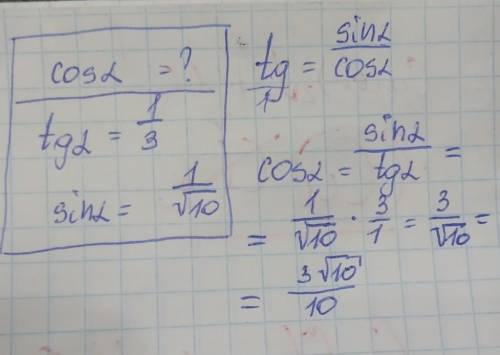 cosα = ?
tgα = 1/3
sinα = 1/√10
tg/1 = sinα/cosα
cosα = sinα/tgα =
= 1/√10 · 3/1 = 3/√10 =
= 3√10/10